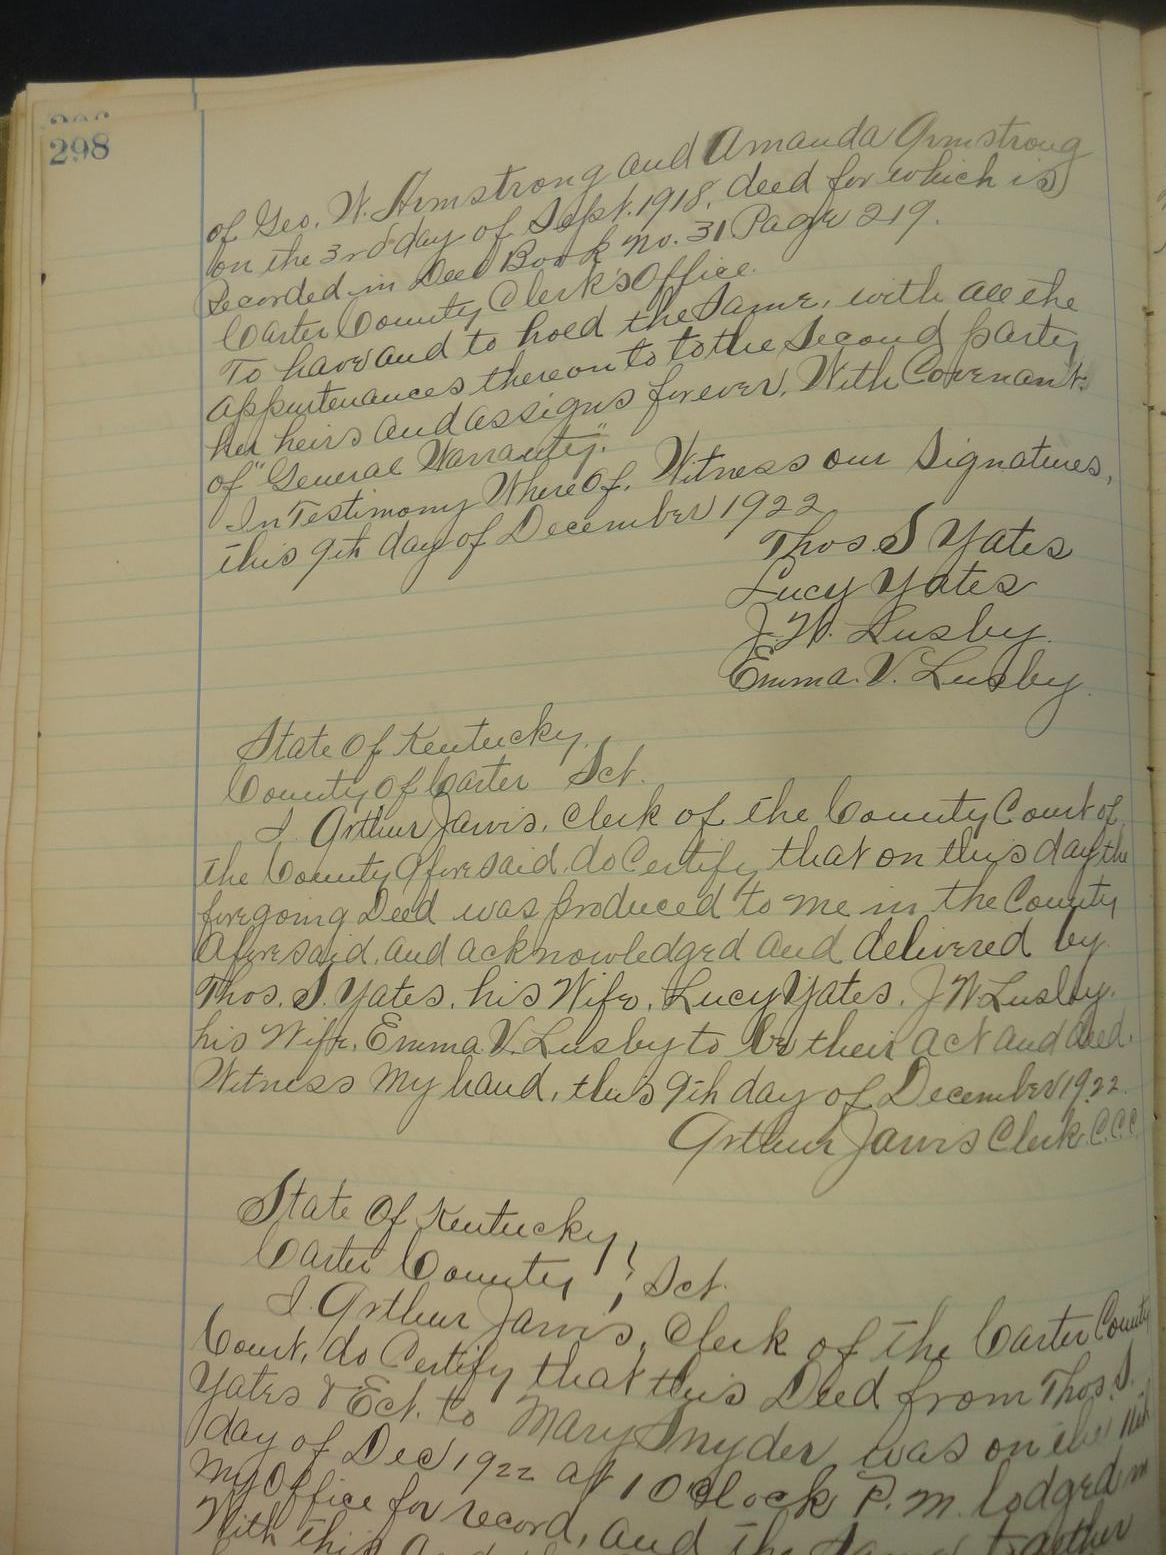 298
of Geo. W. Armstrong and Amanda Armstrong
on the 3rd day of Sept. 1918, deed for which is
Recorded in Deed Book No. 31 Page 219.
Carter County Clerk's Office.
To have and to hold the Same, with all the
Appurtenances thereon to to the Second party
her heirs and assigns forever. With Covenant
of "General Warranty."
In Testimony Where Of, Witness our Signatures,
this 9th day of December 1922
Thos. S Yates
Lucy Yates
J. W. Lusby.
Emma. V. Lusby.
State Of Kentucky,
County Of Carter Sct.
I. Arthur Jarvis, Clerk of the County Court of
the County Aforesaid, do Certify that on this day the
foregoing Deed was produced to me in the County
Aforesaid, and acknowledged and delivered by
Thos. S. Yates, his Wife, Lucy Yates, J W Lusby.
his Wife, Emma V. Lusby to be their act and deed.
Witness My hand, this 9th day of December 1922.
Arthur Jarvis Clerk C.C.C.
State Of Kentucky,
Carter County, Sct.
I. Arthur Jarvis, Clerk of the Carter County
Court, do Certify that this Deed from Thos. S.
Yates & Ect. to Mary Snyder was on the 11th
day of Dec 1922 at 1 O clock P.M. lodged in
My Office for record, and the Same together
With this